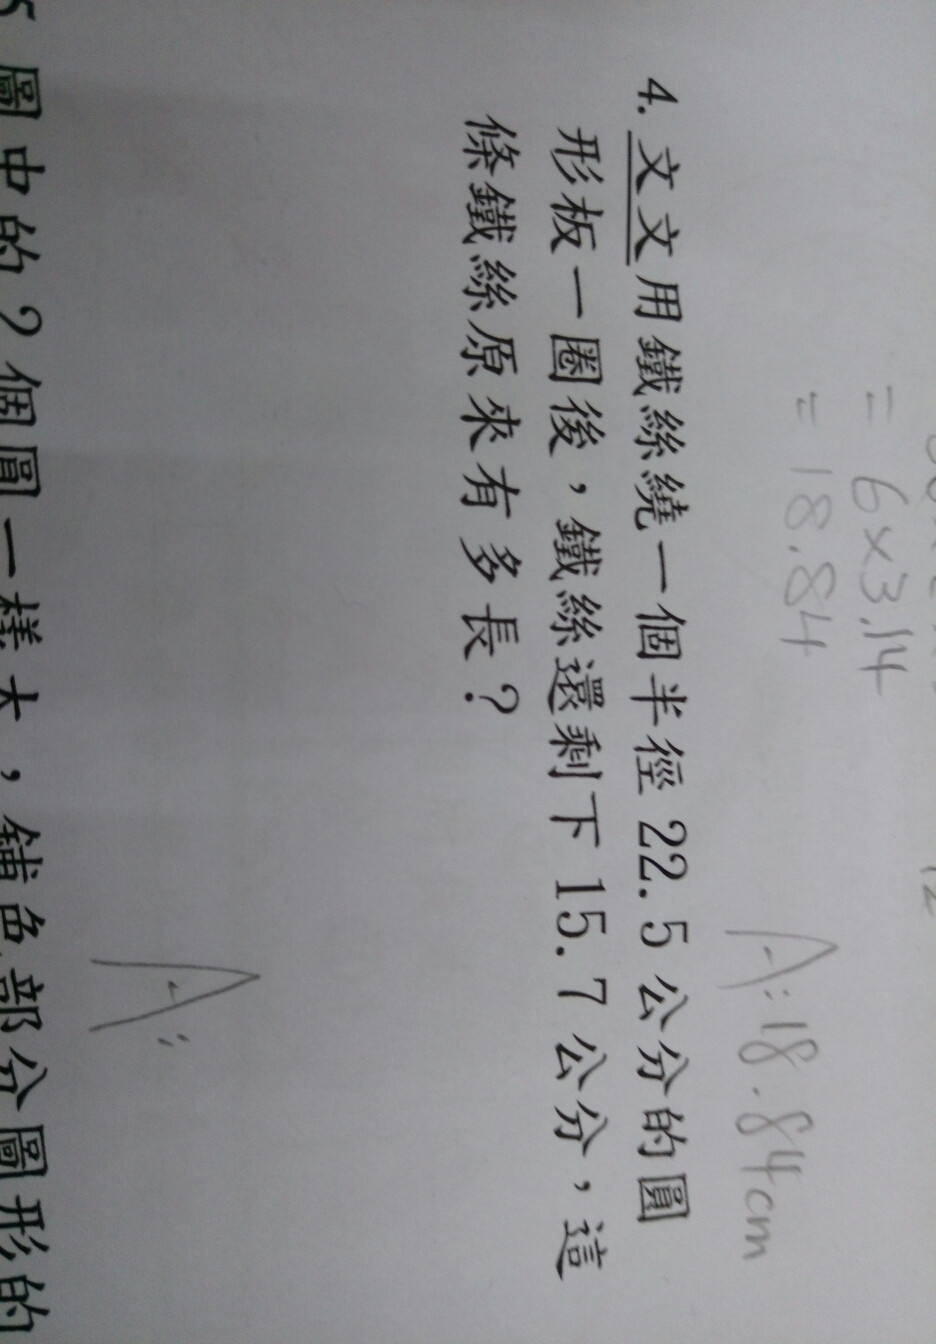 = 6×3.14
= 18.84
A:18.84cm
4. 文文用鐵絲繞一個半徑 22.5 公分的圓
形板一圈後，鐵絲還剩下 15.7 公分，這
條鐵絲原來有多長？
A:
5 圖中的 2 個圓一樣大，鋪色部分圖形的